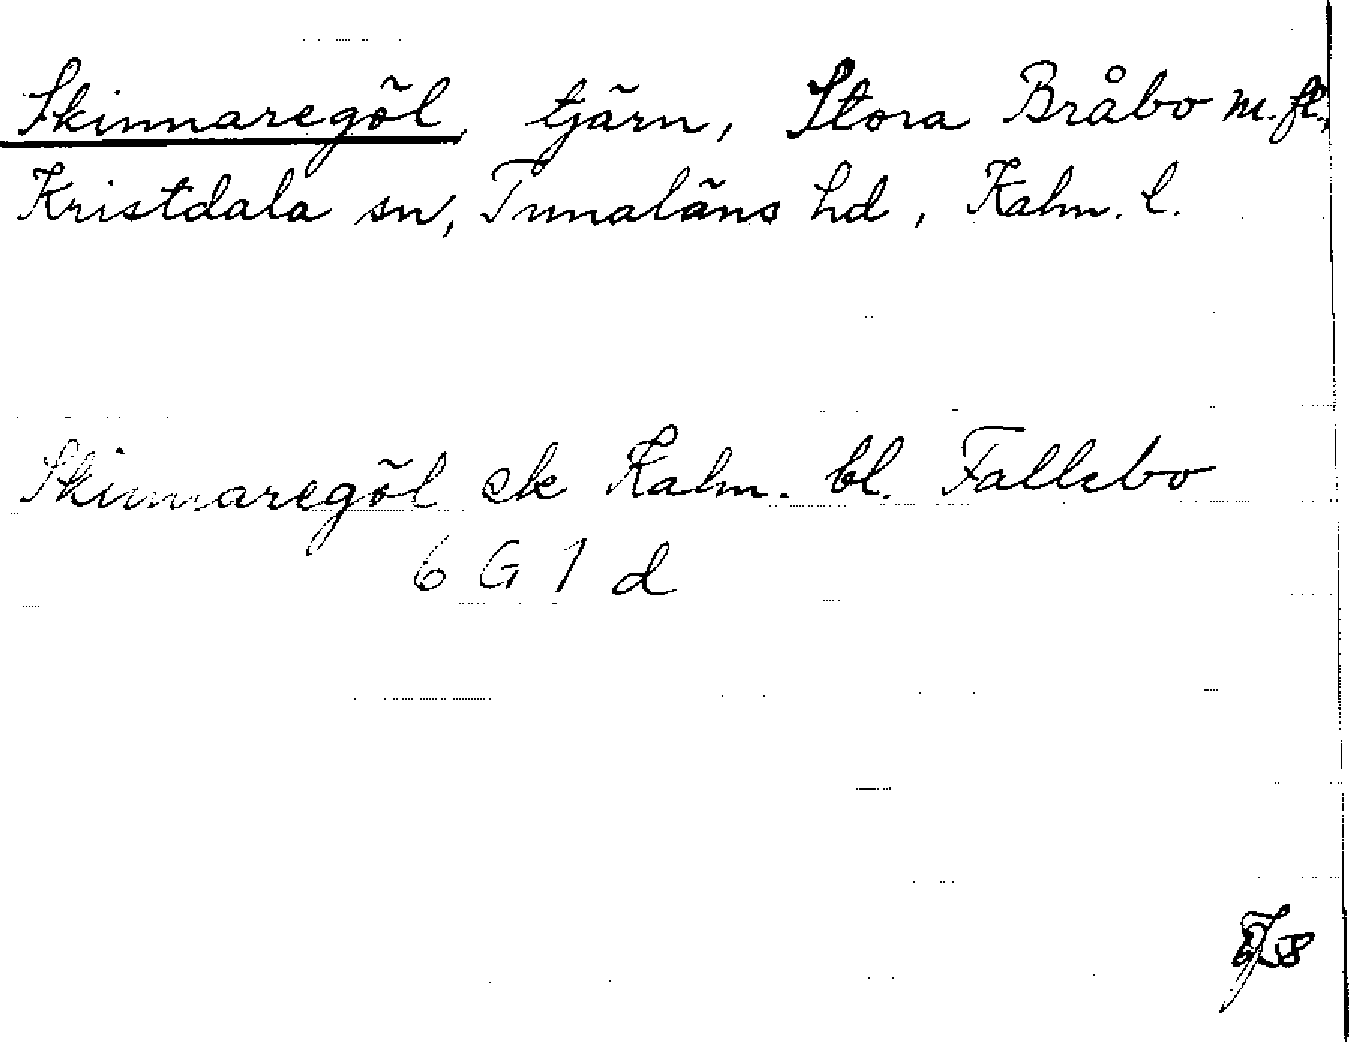 Skinnaregöl, tjärn, Stora Bråbo m.fl.,
Kristdala sn, Tunaläns hd, Kalm. l.
Skinnaregöl ek Kalm. bl. Fallebo
6 G 1 d